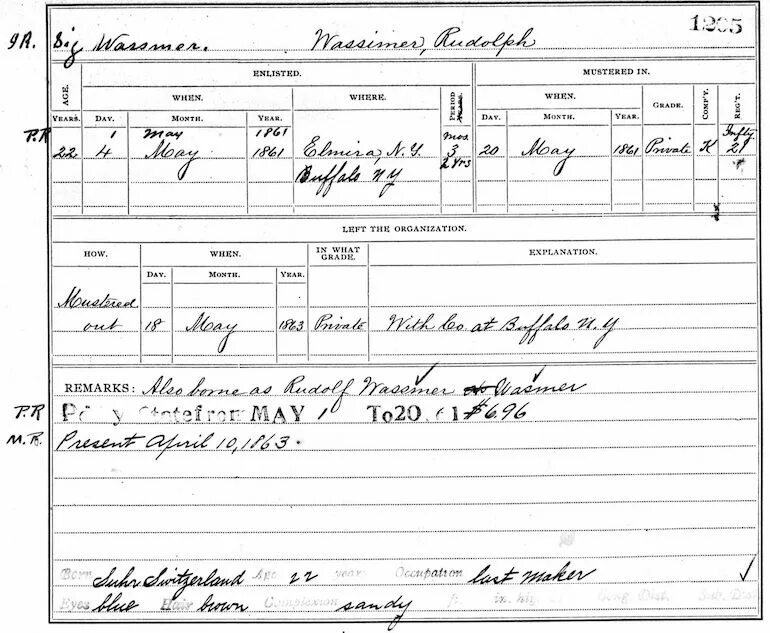 1205
9R. Sig Wassmer. Wassimer, Rudolph
ENLISTED. MUSTERED IN.
AGE. WHEN. WHERE. PERIOD WHEN. GRADE. COMP'Y. REG'T.
YEARS. DAY. MONTH. YEAR. YEARS. DAY. MONTH. YEAR.
P.R. 1 May 1861 mos Infty
22 4 May 1861 Elmira, N.Y. 3 20 May 1861 Private K 21
Buffalo NY 2 Yrs
LEFT THE ORGANIZATION.
HOW. WHEN. IN WHAT GRADE. EXPLANATION.
DAY. MONTH. YEAR.
Mustered
out 18 May 1863 Private With Co. at Buffalo N.Y
REMARKS: Also borne as Rudolf Wassmer or Wasmer
P.R State from MAY 1 To 20. 61 $6.96
M.R. Present April 10, 1863.
Born Suhr Switzerland Age 22 years Occupation last maker
Eyes blue Hair brown Complexion sandy ft. in. high Cong. Dist. Sub. Dist.